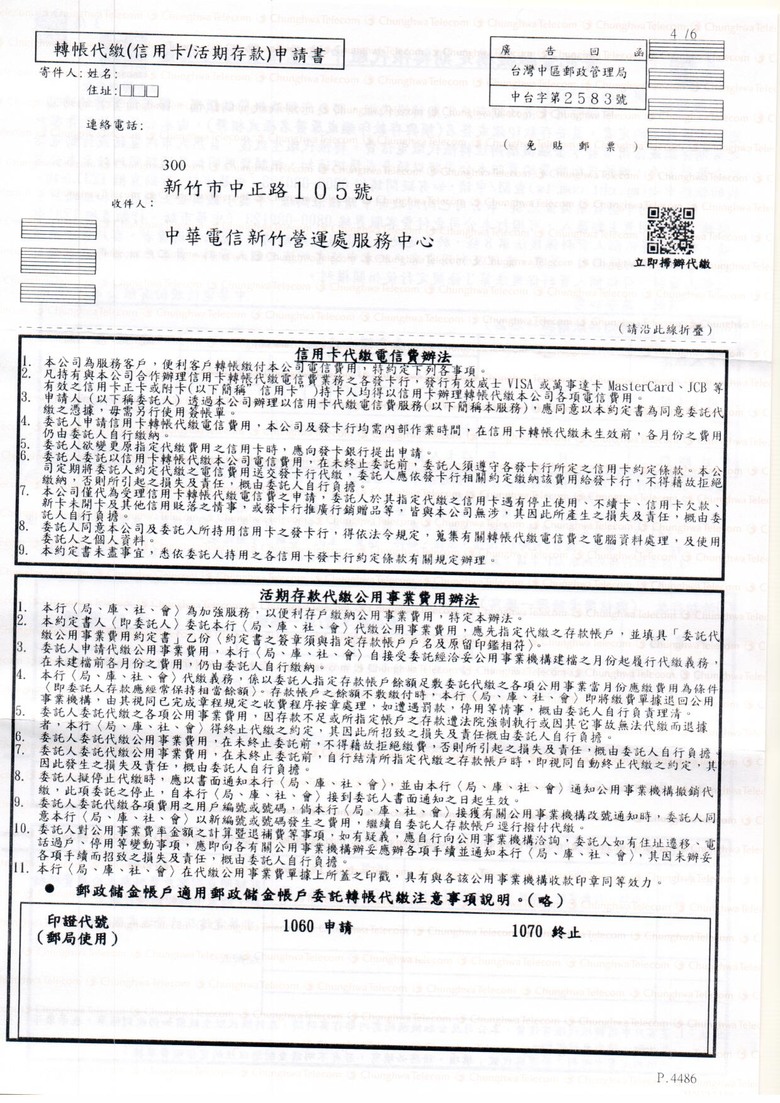 4 /6
轉帳代繳(信用卡/活期存款)申請書
廣告回函
台灣中區郵政管理局
中台字第2583號
(免貼郵票)
寄件人:姓名:
住址:□□□
連絡電話:
300
新竹市中正路105號
收件人:
中華電信新竹營運處服務中心
立即掃辦代繳
(請沿此線折疊)
信用卡代繳電信費辦法
1. 本公司為服務客戶,便利客戶轉帳繳付本公司電信費用,特約定下列各事項。
2. 凡持有與本公司合作辦理信用卡轉帳代繳電信費業務之各發卡行,發行有效威士 VISA 或萬事達卡 MasterCard、JCB 等
有效之信用卡正卡或附卡(以下簡稱"信用卡")持卡人均得以信用卡辦理轉帳代繳本公司各項電信費用。
3. 申請人(以下稱委託人)透過本公司辦理以信用卡代繳電信費服務(以下簡稱本服務),應同意以本約定書為同意委託代
繳之憑據,毋需另行使用簽帳單。
4. 委託人申請信用卡轉帳代繳電信費用,本公司及發卡行均需內部作業時間,在信用卡轉帳代繳未生效前,各月份之費用
仍由委託人自行繳納。
5. 委託人欲變更原指定代繳費用之信用卡時,應向發卡銀行提出申請。
6. 委託人委託以信用卡轉帳代繳本公司電信費用,在未終止委託前,委託人須遵守各發卡行所定之信用卡約定條款。本公
司定期將委託人約定代繳之電信費用送交發卡行代繳,委託人應依發卡行相關約定繳納該費用給發卡行,不得藉故拒絕
繳納,否則所引起之損失及責任,概由委託人自行負擔。
7. 本公司僅代為受理信用卡轉帳代繳電信費之申請,委託人於其指定代繳之信用卡遇有停止使用、不續卡、信用卡欠款、
新卡未開卡及其他信用貶落之情事,或發卡行推廣行銷贈品等,皆與本公司無涉,其因此所產生之損失及責任,概由委
託人自行負擔。
8. 委託人同意本公司及委託人所持用信用卡之發卡行,得依法令規定,蒐集有關轉帳代繳電信費之電腦資料處理,及使用
委託人之個人資料。
9. 本約定書未盡事宜,悉依委託人持用之各信用卡發卡行約定條款有關規定辦理。
活期存款代繳公用事業費用辦法
1. 本行〈局、庫、社、會〉為加強服務,以便利存戶繳納公用事業費用,特定本辦法。
2. 本約定書人〈即委託人〉委託本行〈局、庫、社、會〉代繳公用事業費用,應先指定代繳之存款帳戶,並填具「委託代
繳公用事業費用約定書」乙份〈約定書之簽章須與指定存款帳戶戶名及原留印鑑相符〉。
3. 委託人申請代繳公用事業費用,本行〈局、庫、社、會〉自接受委託經洽妥公用事業機構建檔之月份起履行代繳義務,
在未建檔前各月份之費用,仍由委託人自行繳納。
4. 本行〈局、庫、社、會〉代繳義務,係以委託人指定存款帳戶餘額足數委託代繳之各項公用事業當月份應繳費用為條件
〈即委託人存款應經常保持相當餘額〉。存款帳戶之餘額不敷繳付時,本行〈局、庫、社、會〉即將繳費單據退回公用
事業機構,由其視同已完成章程規定之收費程序按章處理,如遭遇罰款,停用等情事,概由委託人自行負責理清。
5. 委託人委託代繳之各項公用事業費用,因存款不足或所指定帳戶之存款遭法院強制執行或因其它事故無法代繳而退據
者,本行〈局、庫、社、會〉得終止代繳之約定,其因此所招致之損失及責任概由委託人自行負擔。
6. 委託人委託代繳公用事業費用,在未終止委託前,不得藉故拒絕繳費,否則所引起之損失及責任,概由委託人自行負擔。
7. 委託人委託代繳公用事業費用,在未終止委託前,自行結清所指定代繳之存款帳戶時,即視同自動終止代繳之約定,其
因此發生之損失及責任,概由委託人自行負擔。
8. 委託人擬停止代繳時,應以書面通知本行〈局、庫、社、會〉,並由本行〈局、庫、社、會〉通知公用事業機構撤銷代
繳,此項委託之停止,自本行〈局、庫、社、會〉接到委託人書面通知之日起生效。
9. 委託人委託代繳各項費用之用戶編號或號碼,倘本行〈局、庫、社、會〉接獲有關公用事業機構改號通知時,委託人同
意本行〈局、庫、社、會〉以新編號或號碼發生之費用,繼續自委託人存款帳戶逕行撥付代繳。
10. 委託人對公用事業費率金額之計算暨退補費等事項,如有疑義,應自行向公用事業機構洽詢,委託人如有住址遷移、電
話過戶、停用等變動事項,應即向各有關公用事業機構辦妥應辦各項手續並通知本行〈局、庫、社、會〉,其因未辦妥
各項手續而招致之損失及責任,概由委託人自行負擔。
11. 本行〈局、庫、社、會〉在代繳公用事業費單據上所蓋之印戳,具有與各該公用事業機構收款印章同等效力。
● 郵政儲金帳戶適用郵政儲金帳戶委託轉帳代繳注意事項說明。(略)
印證代號 1060 申請 1070 終止
(郵局使用)
P.4486